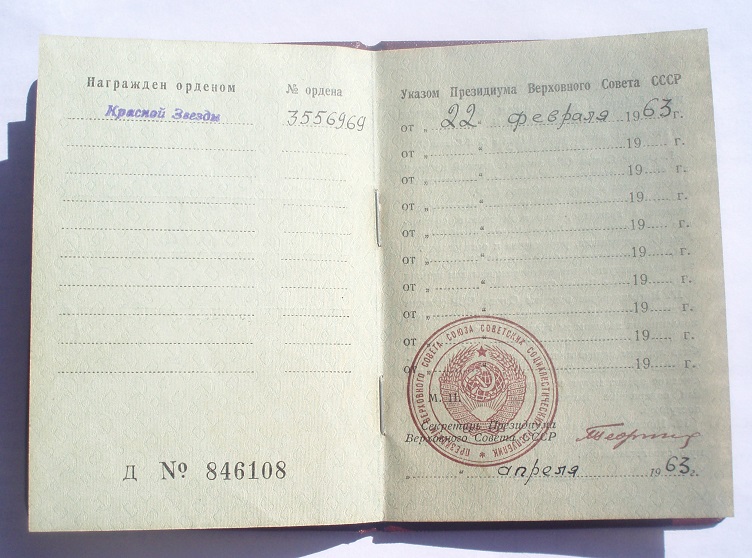 Награжден орденом № ордена
Красной Звезды 3556969
Д № 846108
Указом Президиума Верховного Совета СССР
от „ 22 “ февраля 1963 г.
от „ “ 19 г.
от „ “ 19 г.
от „ “ 19 г.
от „ “ 19 г.
от „ “ 19 г.
от „ “ 19 г.
от „ “ 19 г.
от „ “ 19 г.
от „ “ 19 г.
ПРЕЗИДИУМ ВЕРХОВНОГО СОВЕТА СОЮЗА СОВЕТСКИХ СОЦИАЛИСТИЧЕСКИХ РЕСПУБЛИК
М. П.
Секретарь Президиума
Верховного Совета СССР
„ “ апреля 1963 г.